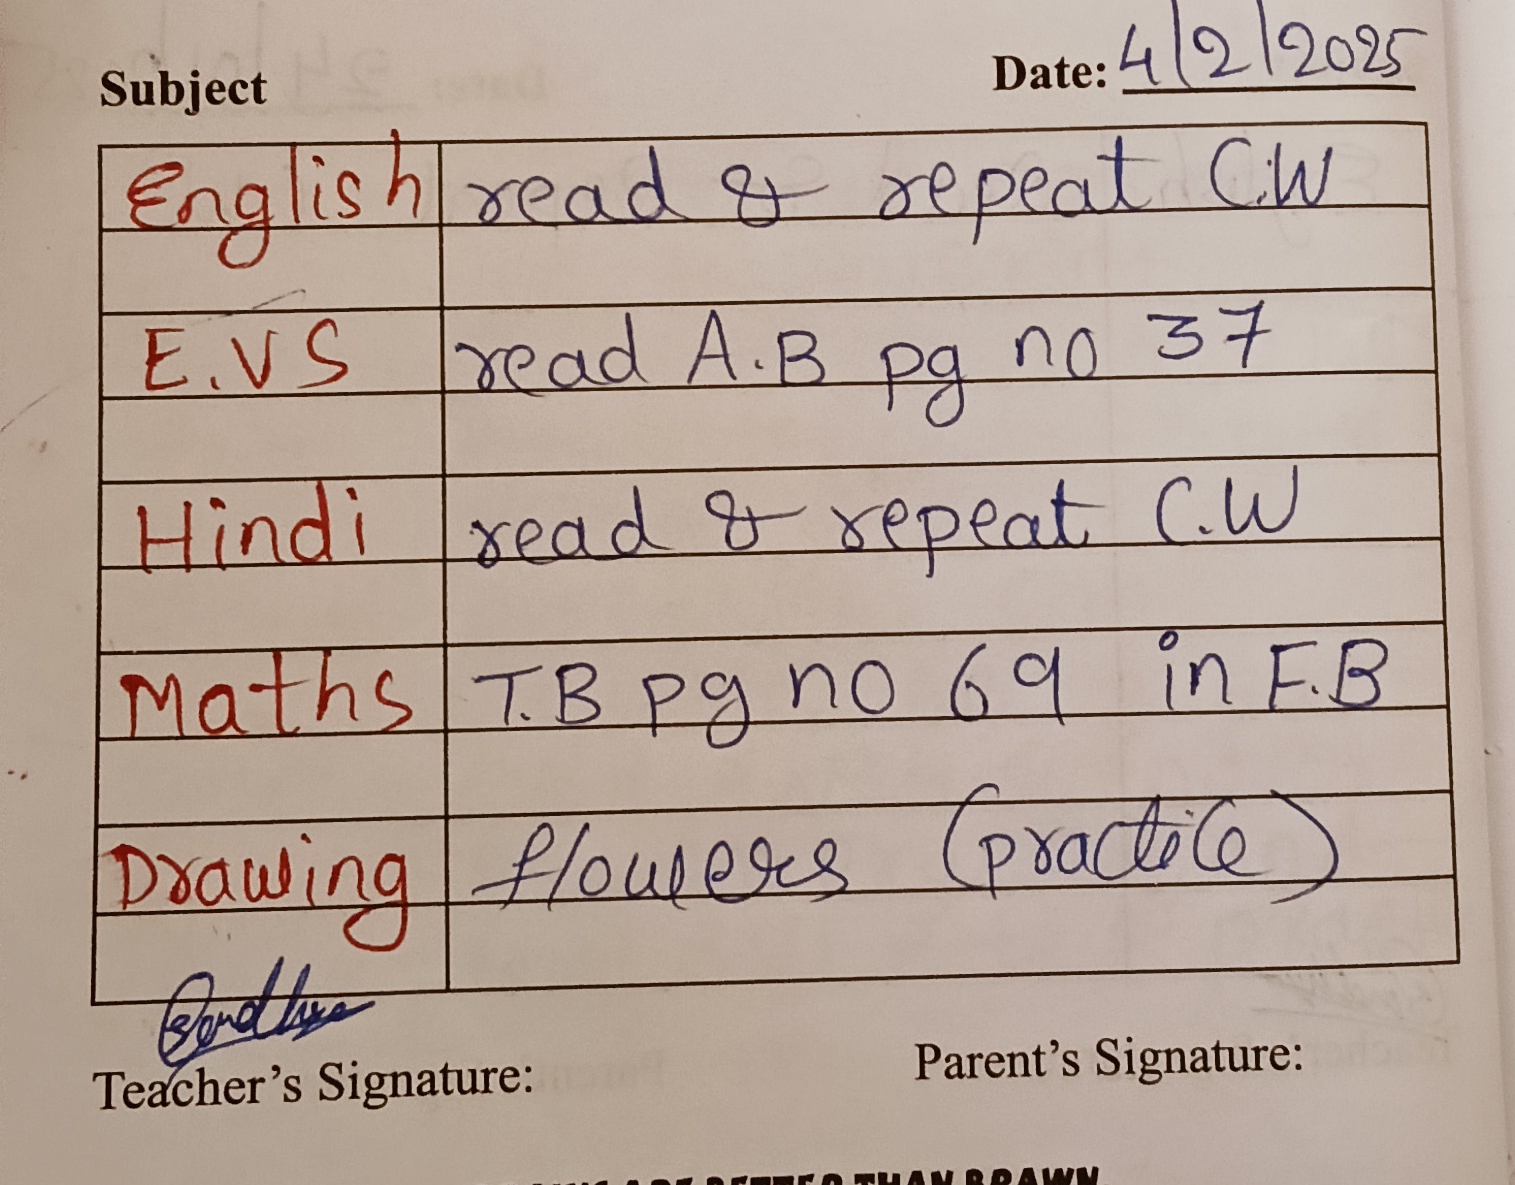 Subject Date: 4/2/2025
English read & repeat C.W
E.VS read A.B pg no 37
Hindi read & repeat C.W
Maths T.B pg no 69 in F.B
Drawing flowers (practice)
Teacher's Signature: Parent's Signature:
BETTER THAN BRAWN